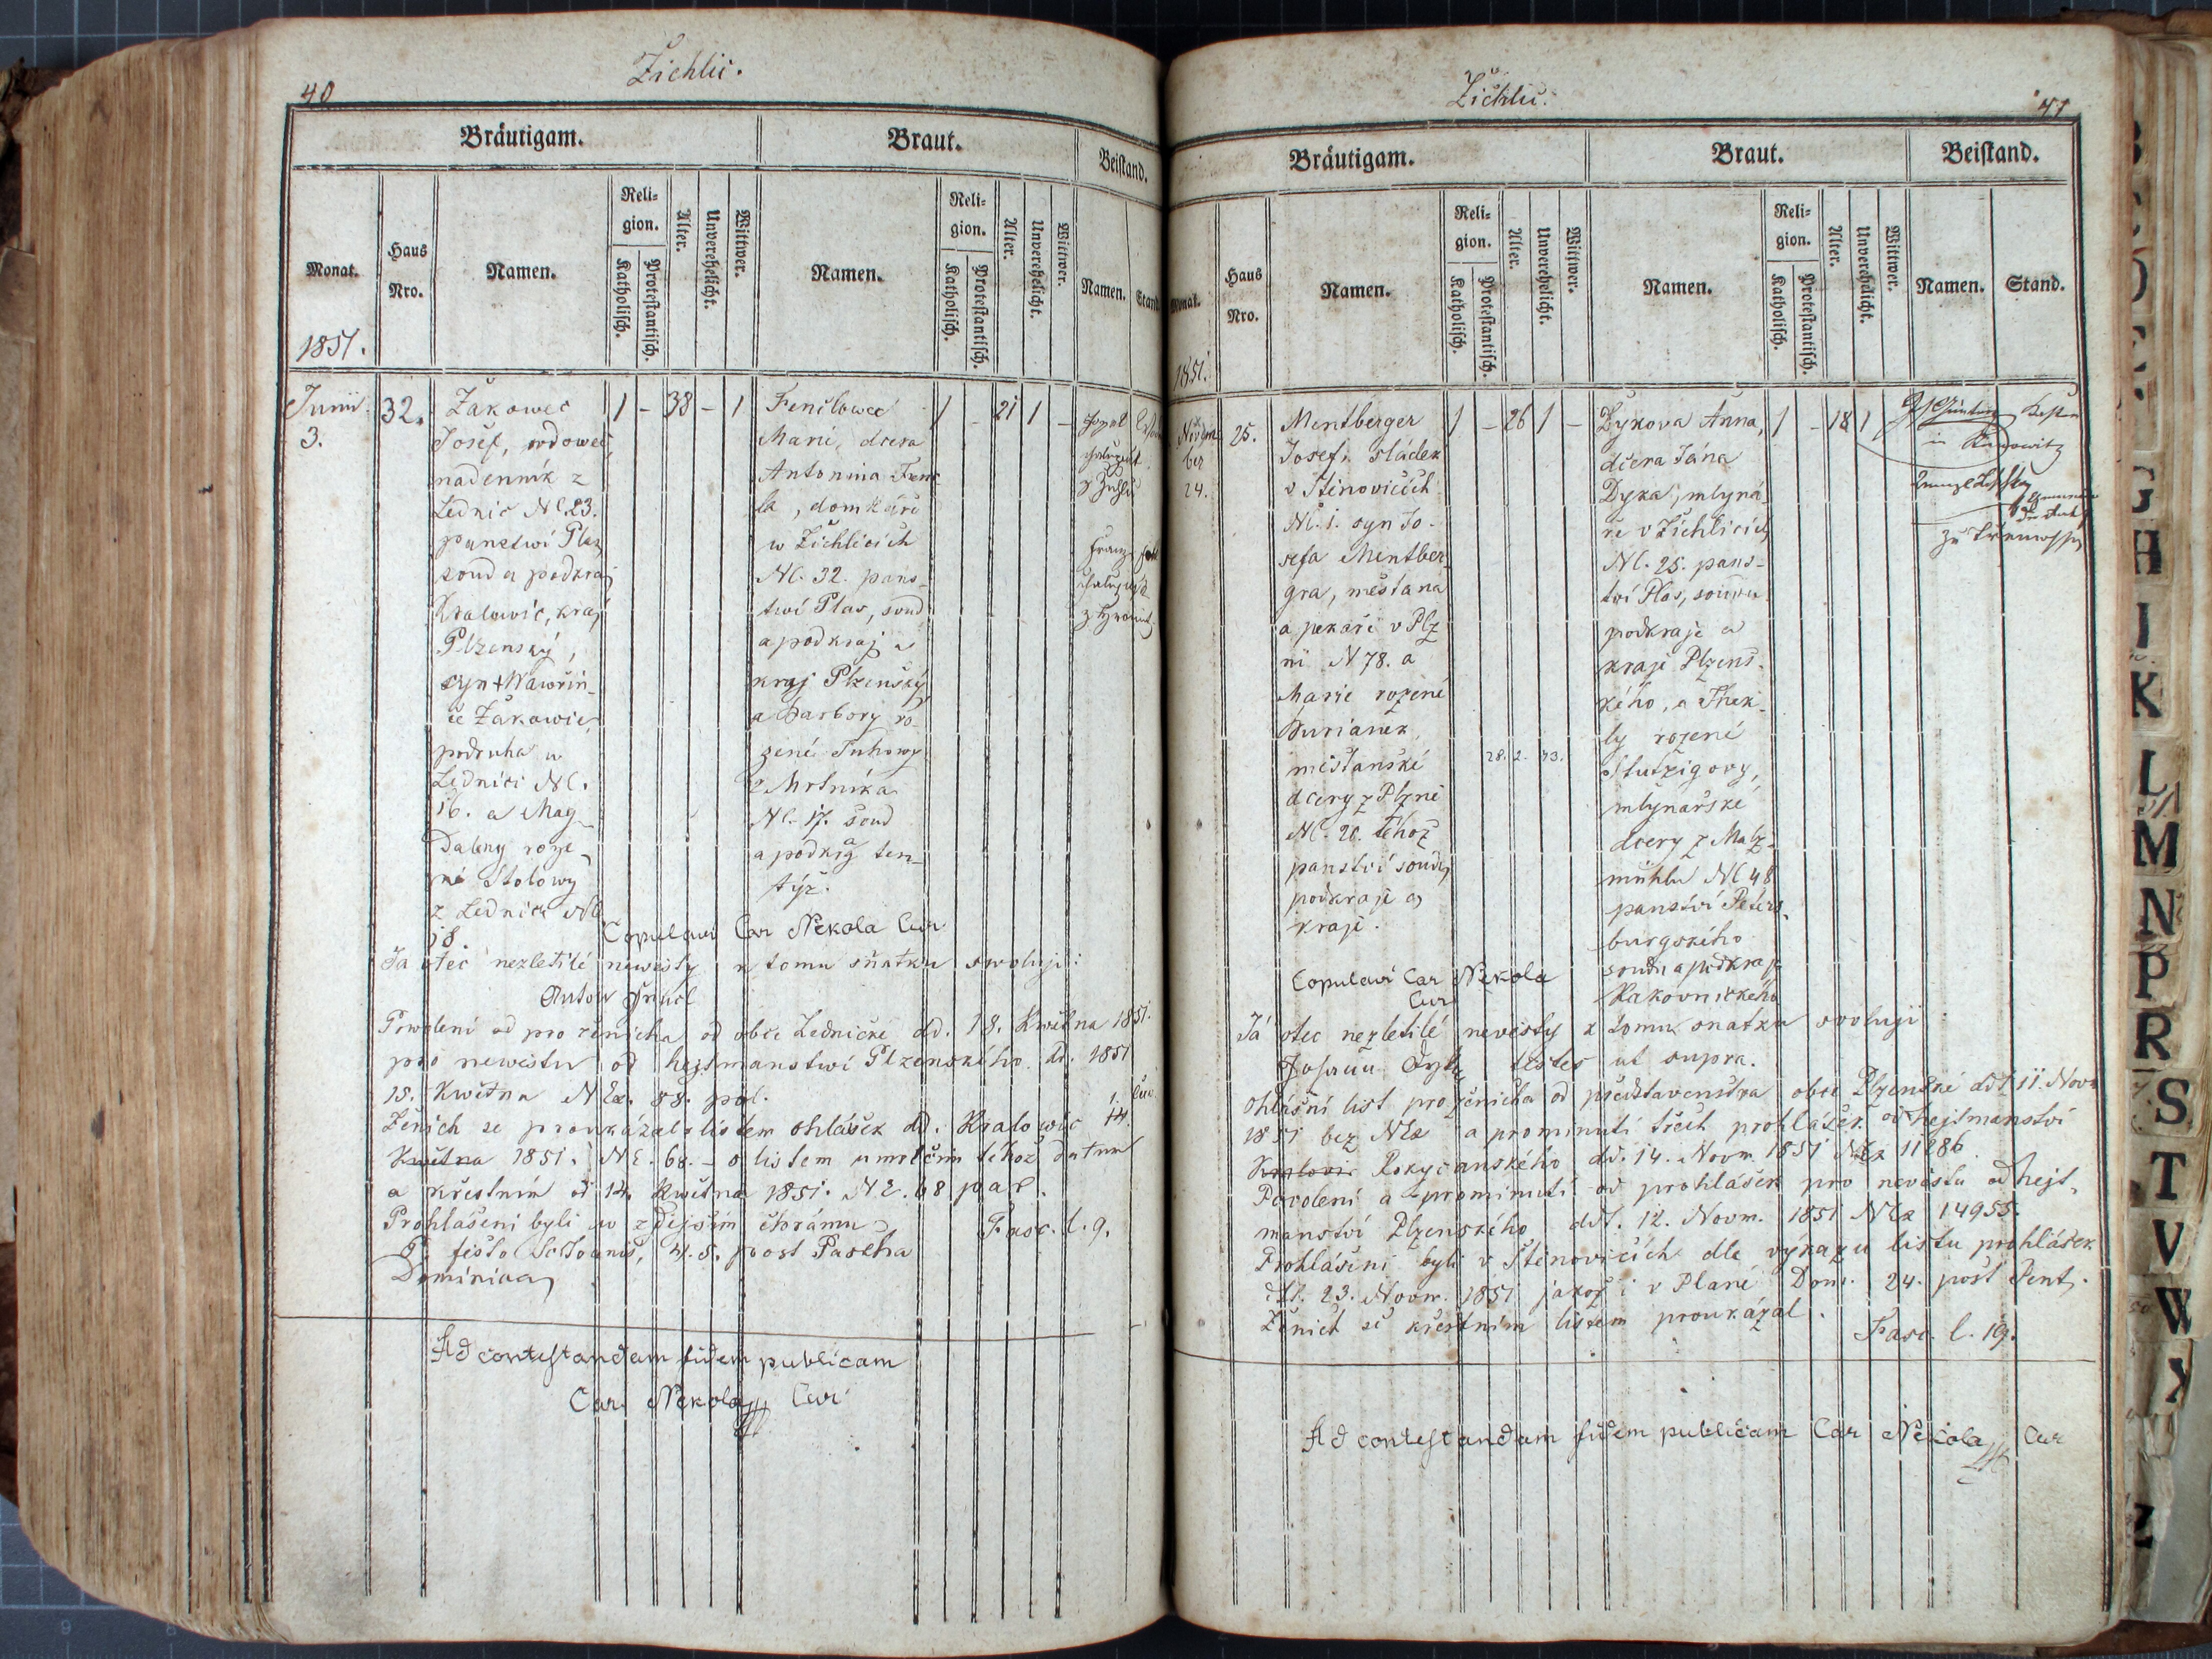 40
Žichlic.
Bräutigam.
Braut.
Beistand.
Monat.
Haus Nro.
Namen.
Religion.
Katholisch.
Protestantisch.
Alter.
Unverehelicht.
Wittwer.
Namen.
Religion.
Katholisch.
Protestantisch.
Alter.
Unverehelicht.
Wittwer.
Namen.
Stand
1851.
Junii
3.
32.
Žakowec
Josef, wdowec,
nadenník z
Lednic NC. 23.
panstwí Plas,
soud a podkraj
Kralowic, kraj
Plzenský,
syn + Wawřin-
ce Žakowic,
podruha w
Lednici NC.
16. a Mag-
daleny roze-
né Stolowy
z Lednic NC.
18.
1 - 38 - 1
Fenclowec
Marie, dcera
Antonina Fenc-
la, domkáře
w Žichlicích
NC. 32. pans-
twí Plas, soud
a podkraj a
kraj Plzenský
a Barbory ro-
zené Tuhowy
z Mrtníka
NC. 17. soud
a podkraj ten-
týž.
1 - 21 1 -
Franz
Copulavi Car Nekola Cur
Já otec nezletilé newěsty k tomu sňatku swoluji:
Anton Fencl
Powolení od pro ženicha od obce Lednické dd. 18. Května 1851.
pro newěstu od hejtmanstwí Plzenského dd. 1851
15. Kwětna N Ex. 88. pol.
Ženich se proukázal listem ohlášek dd. Kralowic 14.
Kwětna 1851. NE. 68. - s listem umrlčím téhož datum
a křestním od 14. Kwětna 1851. NE. 68 par.
Prohlášeni byli w zdejším chrámu
festo 4. 5. post Pascha
Dominica
Fasc. l. 9.
Ad contestandam fidem publicam
Car. Nekola Cur
Žichlic.
41
Bräutigam.
Braut.
Beistand.
Monat.
Haus Nro.
Namen.
Religion.
Katholisch.
Protestantisch.
Alter.
Unverehelicht.
Wittwer.
Namen.
Religion.
Katholisch.
Protestantisch.
Alter.
Unverehelicht.
Wittwer.
Namen.
Stand.
1851.
Novem-
ber
24.
25.
Mentberger
Josef, sládek
v Štěnovicích
NC. 1. syn Jo-
sefa Mentber-
gra, měštana
a pekaře v Plz-
ni N 78. a
Marie rozené
Burianek,
měštanské
dcery z Plzně
NC. 20. téhož
panství soudu,
podkraje a
kraje.
1 - 26 1 -
28. 2. 43.
Dykova Anna,
dcera Jána
Dyka, mlyná-
ře v Žichlicích
NC. 25. pans-
tví Plas, soudu
podkraje a
kraje Plzens-
kého, a Thek-
ly rozené
Stutzigovy,
mlynářské
dcery z Malz-
mühlu NC 48
panství Peters-
burgského
soudu a podkraje
Rakovnického
1 - 18 1
Copulavi Car Nekola
Cur
Já otec nezletilé nevěsty k tomu snatku svoluji
Johann Dyk testes ut supra.
Ohlášní list pro ženicha od představenstva obce Plzenské ddt 11. Novm
1851 bez NEx a prominutí třech prohlášek od hejtmanství
Rokycanského dd. 14. Novm. 1851 NEx 11286.
Povolení a prominutí od prohlášek pro nevěstu od hejt-
manství Plzenského ddt. 12. Novm. 1851 NEx 14955.
Prohlášeni byli v Štěnovicích dle výkazu listu prohlášek
dt. 23. Novm. 1851 jakož i v Plané Dom. 24. post Pent.
Ženich se křestním listem proukázal.
Fasc. l. 19.
Ad contestandam fidem publicam Car Nekola Cur
G
H
I
K
L
M
N
P
R
S
T
V
W
X
Z